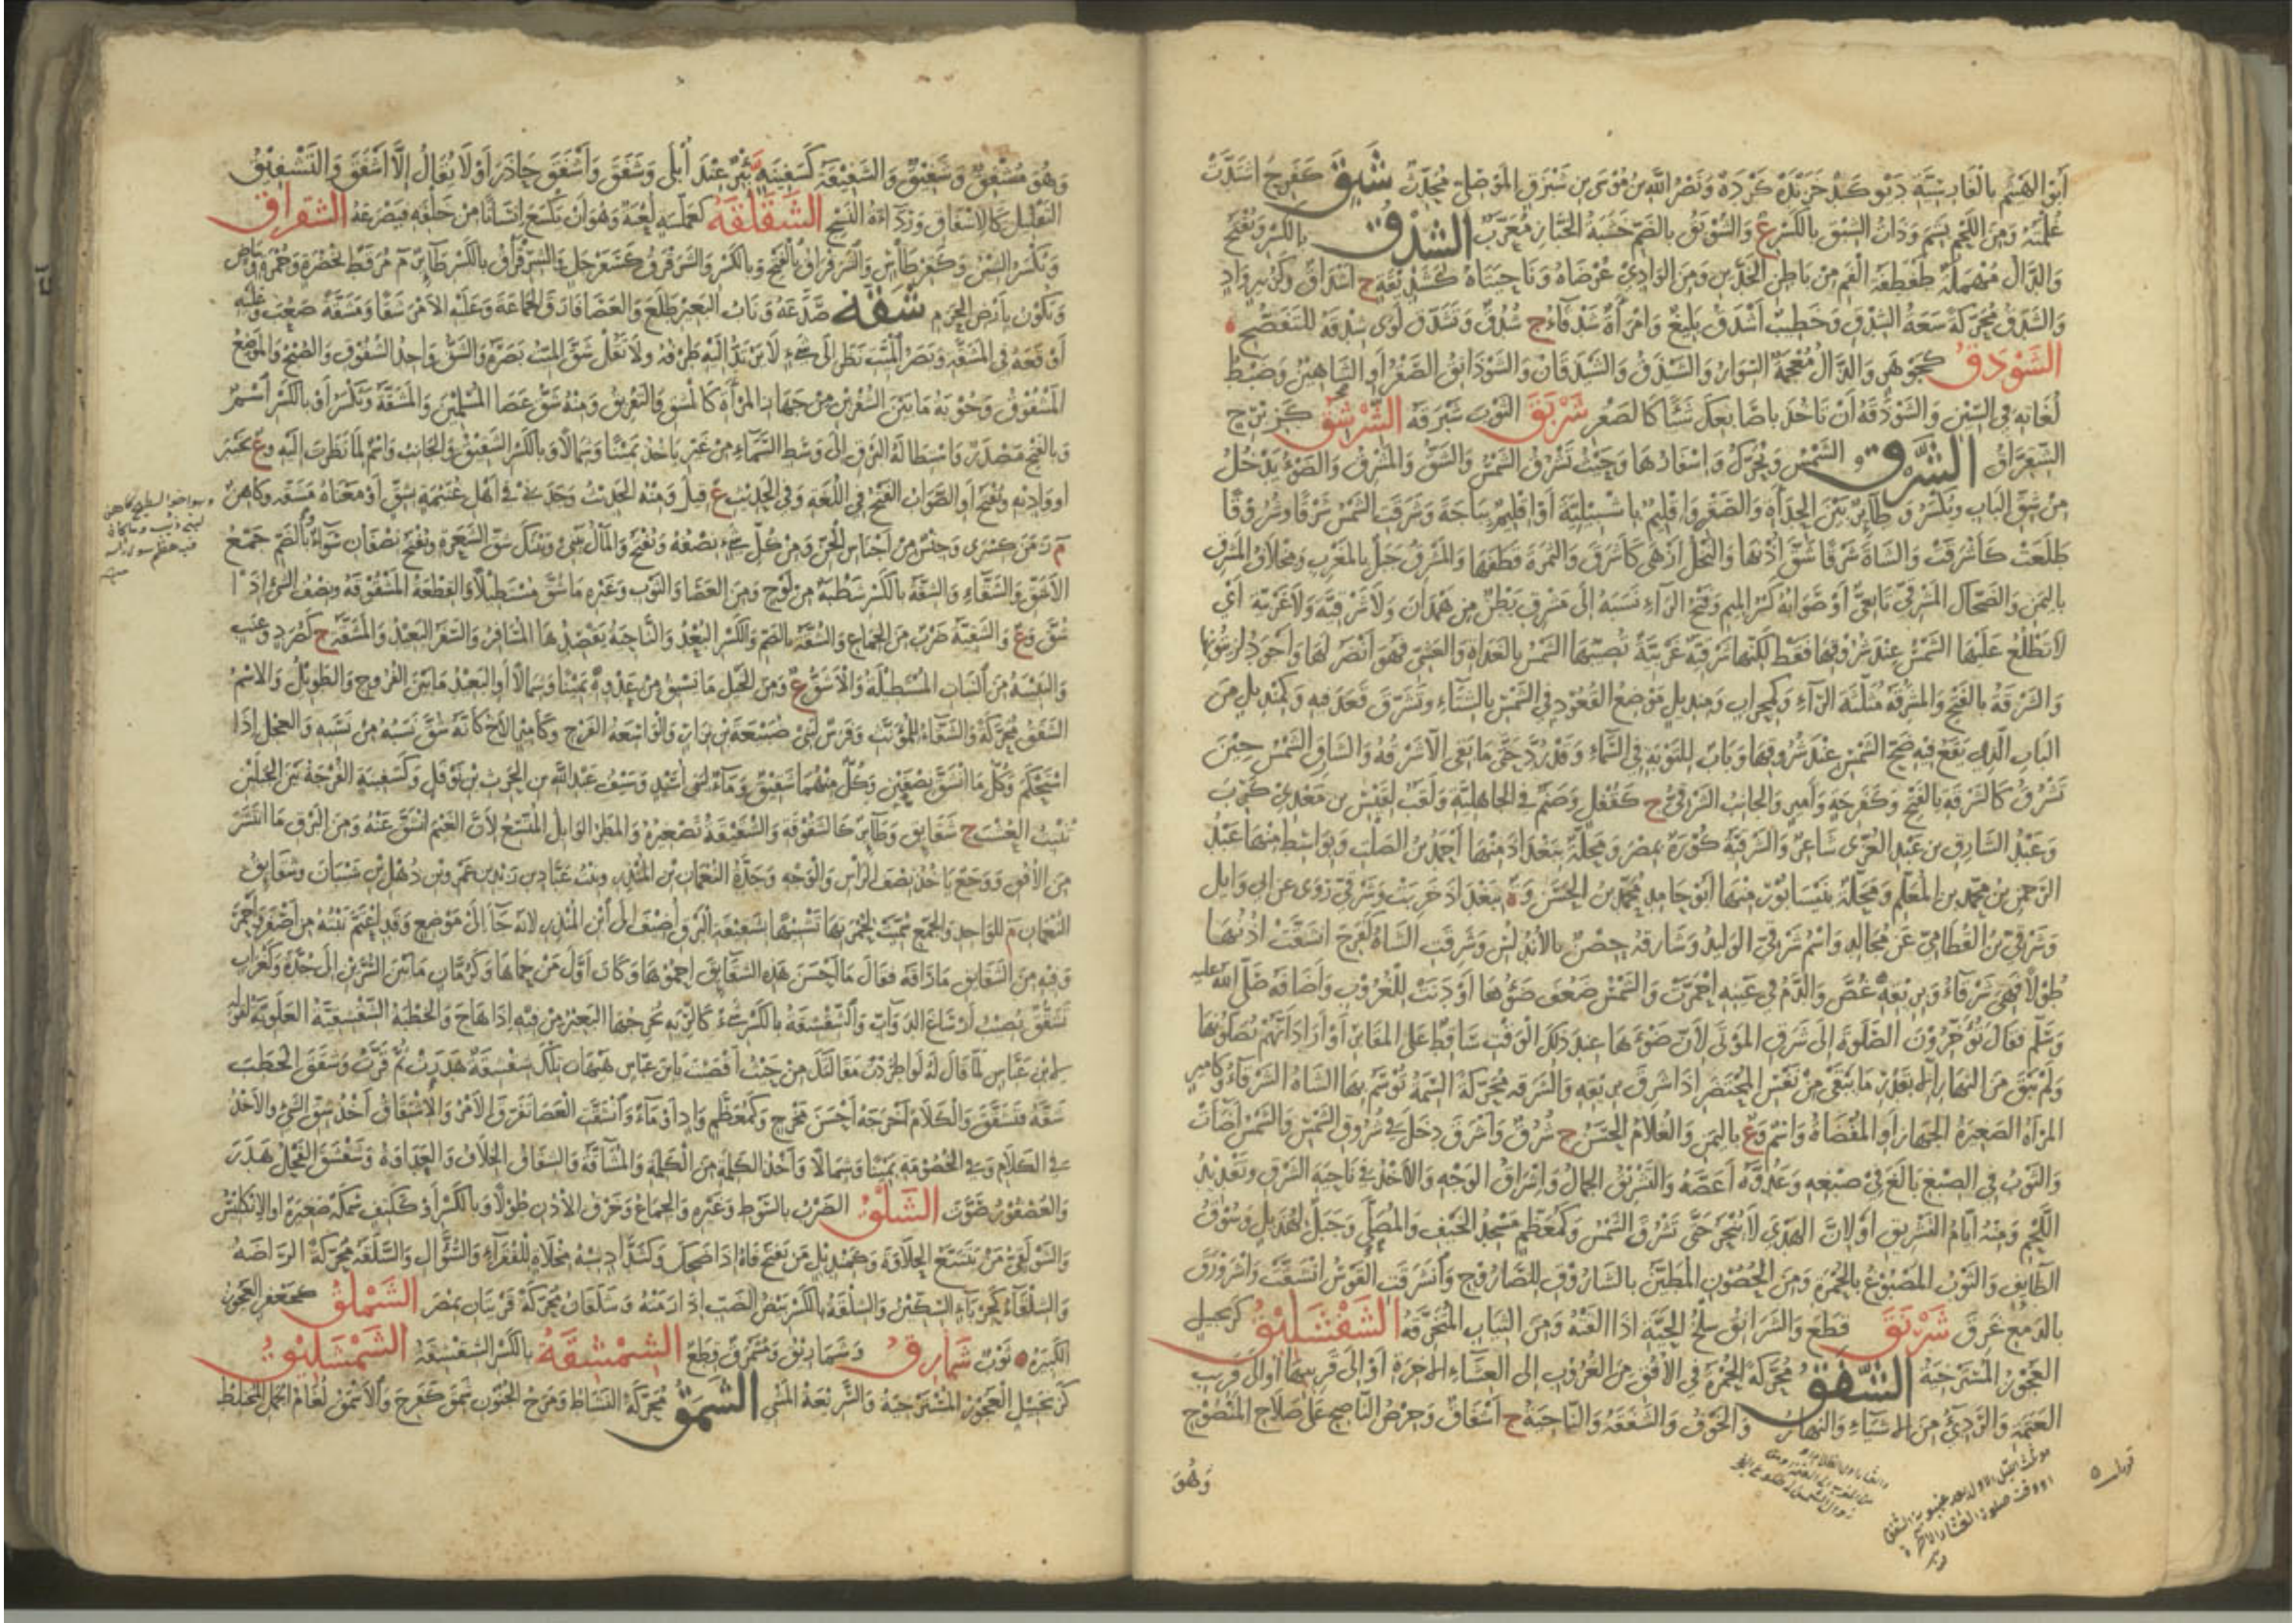 أبو الهيثم بالغاربشبة دبوكد خزبدة كرده ونصر الله بن موسى بن شبرق الموصلي محدث شبق كفرح اشتدت
غلمته ومن اللحم بشم وذات الشبق بالكسر ع والشوبق بالضم خشبة الخباز معرب الشدق بالكسر ويفتح
والدال مهملة طفطفة الفم من باطن الخدين ومن الوادي عرضاه وناحيتاه كشدقه ج أشداق وكزبير واد
والشدق محركة سعة الشدق وخطيب أشدق بليغ وامرأة شدقاء ج شدق وتشدق لوى شدقه للتفصح
الشوذق كجوهر والذال معجمة السوار والشيذق والشيذقان والشوذانق الصقر أو الشاهين وضبط
لغاته في السين والشوذقة أن تأخذ بأصابعك شيئا كالصقر شربق الثوب شبرقه الشرشق كزبرج
الشقراق الشرق الشمس ويحرك وإسفارها وحيث تشرق الشمس والشق والمشرق والضوء يدخل
من شق الباب ويكسر و طائر بين الحدأة والصقر وإقليم باشبيلية أو إقليم بباجة وشرقت الشمس شرقا وشروقا
طلعت كأشرقت والشاة شرقا شق أذنها والنخل أزهى كأشرق والثمرة قطفها والمشرق جبل بالمغرب ومخلاف المشرق
باليمن والضحاك المشرقي تابعي أو صوابه كسر الميم وفتح الراء نسبة إلى مشرق بطن من همدان ولا شرقية ولا غربية أي
لا تطلع عليها الشمس عند شروقها فقط لكنها شرقية غربية تصيبها الشمس بالغداة والعشي فهو أنضر لها وأجود لزيتونها
والشرقة بالفتح والمشرقة مثلثة الراء وكمحراب ومنديل موضع القعود في الشمس بالشتاء وتشرق قعد فيه وكمنديل من
الباب الذي يقع فيه ضح الشمس عند شروقها وباب للتوبة في السماء وقد رد حتى ما بقي إلا شرقه والشارق الشمس حين
تشرق كالشرقة بالفتح وكفرحة وأمير والجانب الشرقي ج كقفل وصنم في الجاهلية ولقب لقيس بن معدي كرب
وعبد الشارق بن عبد العزى شاعر والشرقية كورة بمصر ومحلة ببغداد منها أحمد بن الصلت وبواسط منها عبد
الرحمن بن محمد بن المعلم ومحلة بنيسابور منها أبو حامد محمد بن الحسن وة ببغداد خربت وشرقي روى عن أبي وائل
وشرقي بن القطامي عن مجالد واسم شرقي الوليد وشارقة حصن بالأندلس وشرقت الشاة كفرح انشقت أذنها
طولا فهي شرقاء وبريقه غص والدم في عينه احمرت والشمس ضعف ضوءها أو دنت للغروب وأضافه صلى الله عليه
وسلم فقال يؤخرون الصلوة إلى شرق الموتى لأن ضوءها عند ذلك الوقت ساقط على المقابر أو أراد أنهم يصلونها
ولم يبق من النهار إلا بقدر ما يبقى من نفس المحتضر إذا شرق بريقه والشرقة محركة السمة توسم بها الشاة الشرقاء وكأمير
المرأة الصغيرة الجهاز أو المفضاة واسم وع باليمن والغلام الحسن ج شرق وأشرق دخل في شروق الشمس والشمس أضاءت
والثوب في الصبغ بالغ في صبغه وعدوه أغصه والتشريق الجمال وإشراق الوجه والأخذ في ناحية الشرق وتقديد
اللحم ومنه أيام التشريق أو لأن الهدي لا ينحر حتى تشرق الشمس وكمعظم مسجد الخيف والمصلى وجبل لهذيل وسوق
الطائف والثوب المصبوغ بالحمرة ومن الحصون المطين بالشاروق للصاروج وانشرقت القوس انشقت واشرورق
بالدمع غرق شرنق قطع والشرانق سلخ الحية إذا ألقته ومن الثياب المتخرقة الشفشليق كزنجبيل
العجوز المسترخية الشفق محركة الحمرة في الأفق من الغروب إلى العشاء الآخرة أو إلى قريبها أو إلى قريب
العتمة والرديء من الأشياء والنهار والخوف والشفقة والناحية ج أشفاق وحرص الناصح على صلاح المنصوح
وهو
وهو مشفق وشفيق والشفيقة كسفينة بئر عند أبلى وشفق وأشفق حاذر أو لا يقال إلا أشفق والتشفيق
التقليل كالإشفاق ورداءة النسج الشفلقة كعملسة لعبة وهو أن يكسع إنسانا من خلفه فيصرعه الشقراق
ويكسر الشين وكقرطاس والشرقراق بالفتح وبالكسر والشرقرق كسفرجل والشرقراق بالكسر طائر م مرقط بخضرة وحمرة وبياض
ويكون بأرض الحرم شقه صدعه وناب البعير طلع والعصا فارق الجماعة وعليه الأمر شقا ومشقة صعب وعليه
أوقعه في المشقة وبصر الميت نظر إلى شيء لا يرتد إليه طرفه ولا تقل شق الميت بصره والشق واحد الشقوق والصبح والموضع
المشقوق وجوبة ما بين الشفرين من جهاز المرأة كالمشق والتفريق ومنه شق عصا المسلمين والمشقة ويكسر أو بالكسر اسم
وبالفتح مصدر واستطالة البرق إلى وسط السماء من غير يأخذ يمينا وشمالا وبالكسر الشقيق والجانب واسم لما نظرت إليه وع بخيبر
أو واد به ويفتح أو الصواب الفتح في اللغة وفي الحديث ع قيل ومنه الحديث وجدني في أهل غنيمة بشق أو معناه مشقة وكاهن
م زمن كسرى وجنس من أجناس الجن ومن كل شيء نصفه ويفتح والمال بيني وبينك شق الشعرة ويفتح نصفان سواء بالضم جمع
الأشق والشقاء والشقة بالكسر شظية من لوح ومن العصا والثوب وغيره ما شق مستطيلا والقطعة المشقوقة ونصف الشيء إذا
شق وع والشقية ضرب من الجماع والشقة بالضم والكسر البعد والناحية يقصدها المسافر والسفر البعيد والمشقة ج كصرد وعنب
والسبيبة من الثياب المستطيلة والأشق ع ومن الخيل ما يشتق من عدوه يمينا وشمالا أو البعيد ما بين الفروج والطويل والاسم
الشقق محركة والشقاء للمؤنث وفرس لبني ضبيعة بن نزار والواسعة الفرج وكأمير الأخ كأنه شق نسبه من نسبه والعجل إذا
استحكم وكل ما انشق نصفين وكل منهما شقيق وماء لبني أسيد وسيف عبد الله بن الحرث بن نوفل وكسفينة الفرجة بين الحبلين
تنبت العشب ج شقائق وطائر كالشقوقة والشقيقة تصغيره والمطر الوابل المتسع لأن الغيم انشق عنه ومن البرق ما انتشر
من الأفق ووجع يأخذ نصف الرأس والوجه وجدة النعمان بن المنذر وبنت عباد بن زيد بن عمرو بن ذهل بن شيبان وشقائق
النعمان م للواحد والجمع سميت لحمرتها تشبيها بشقيقة البرق وأضيف إلى ابن المنذر لأنه جاء إلى موضع وقد اعتم نبته من أصفر وأحمر
وفيه من الشقائق ما راقه فقال ما أحسن هذه الشقائق احموها وكان أول من حماها وكرمان ما بين السرين إلى جدة وكغراب
تشقق يصيب أرساغ الدواب والشقشقة بالكسر شيء كالرئة يخرجها البعير من فيه إذا هاج والخطبة الشقشقية العلوية لقوله
لابن عباس لما قال له لو اطردت مقالتك من حيث أفضيت يا ابن عباس هيهات تلك شقشقة هدرت ثم قرت وشقق الحطب
شقه فتشقق والكلام أخرجه أحسن مخرج وكمعظم واد أو ماء وانشقت العصا تفرق الأمر والاشتقاق أخذ شق الشيء والأخذ
في الكلام وفي الخصومة يمينا وشمالا وأخذ الكلمة من الكلمة والمشاقة والشقاق الخلاف والعداوة وشقشق الفحل هدر
والعصفور صوت الشلق الضرب بالسوط وغيره والجماع وخرق الأذن طولا وبالكسر أو ككتف سمكة صغيرة أو الأنكليس
والشولقي من يتتبع الحلاوة وكمنديل من يفتح فاه إذا ضحك وكشداد شبه مخلاة للفقراء والسؤال والشلقة محركة الراضة
والشلقاء كحرباء السكين والشلقة بالكسر بيض الضب إذا رمته وشلقان محركة قريتان بمصر الشملق كجعفر العجوز
الكبيرة ثوب شمارق وشماريق ومشمرق قطع الشمشقة بالكسر الشقشقة الشمشليق
كزنجبيل العجوز المسترخية والسريعة المشي الشمق محركة النشاط ومرح الجنون شمق كفرح والأشمق لغام الجمل المختلط